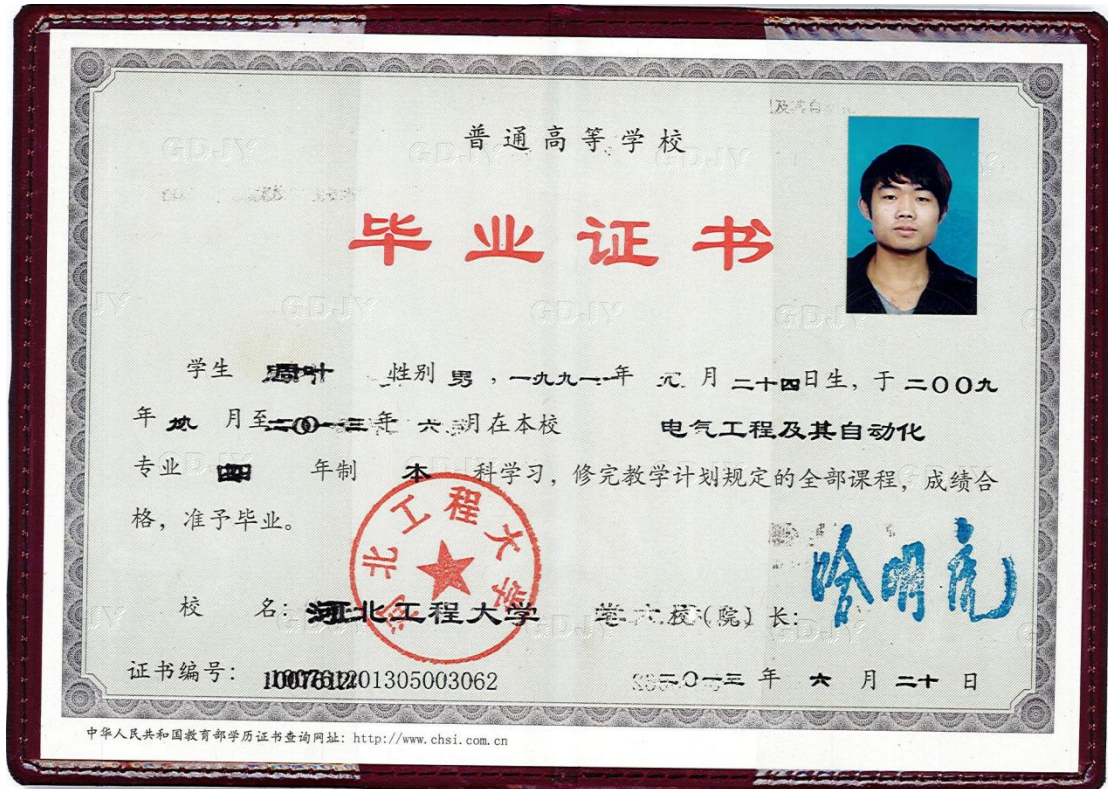 普通高等学校
毕业证书
学生 周叶 性别 男，一九九一年 元 月 二十四日生，于 二〇〇九
年 九 月至二〇一三年 六 月在本校 电气工程及其自动化
专业 四 年制 本 科学习，修完教学计划规定的全部课程，成绩合
格，准予毕业。
河北工程大学
校 名：河北工程大学 校（院）长：哈明虎
证书编号： 201305003062 二〇一三 年 六 月 二十 日
中华人民共和国教育部学历证书查询网址：http://www.chsi.com.cn
GDJY